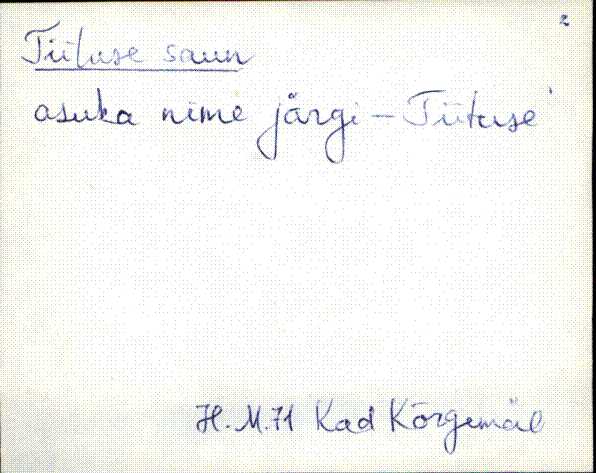 2
Tiituse saun
asuka nime järgi – Tiituse
H. M. 71 Kad Kõrgemäe